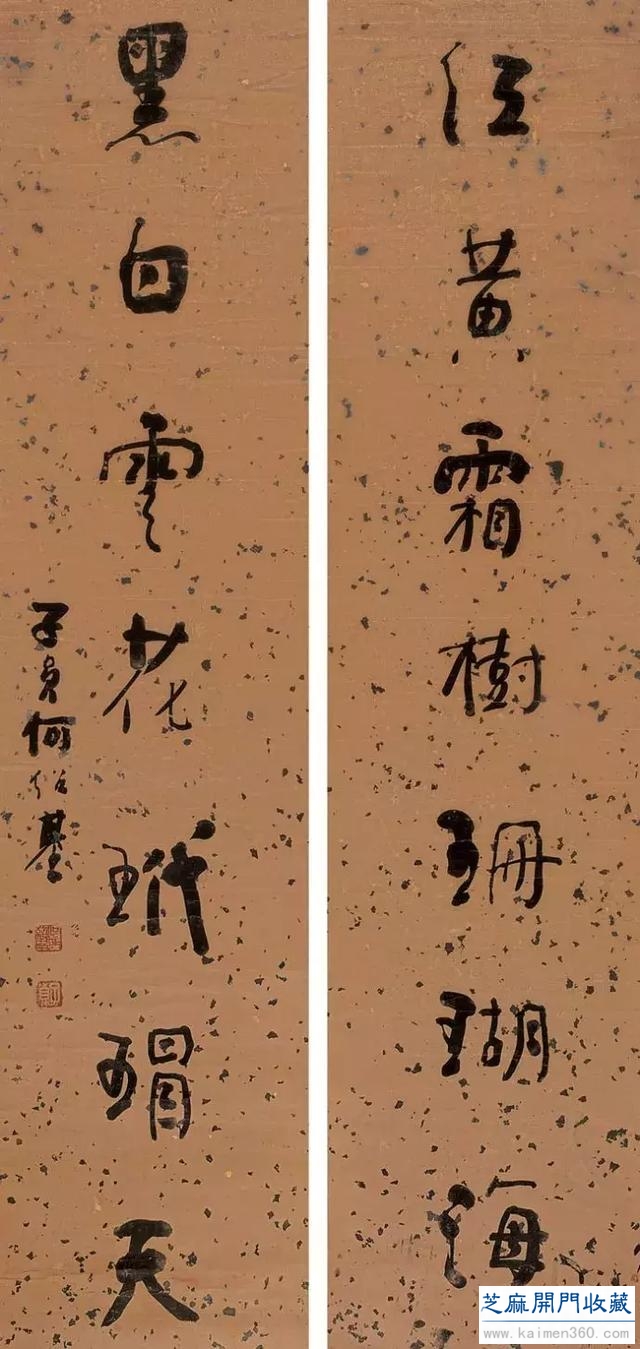 紅黄霜樹珊瑚海
黑白雲花玳瑁天
子貞何紹基
芝麻開門收藏
www.kaimen360.com